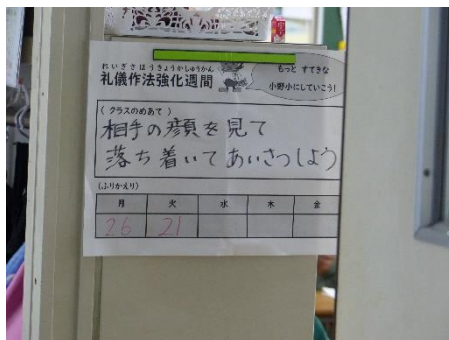 れいぎさほうきょうかしゅうかん
礼儀作法強化週間
もっと すてきな
小野小にしていこう!
(クラスのめあて)
相手の顔を見て
落ち着いてあいさつしよう
(ふりかえり)
月 火 水 木 金
26 21